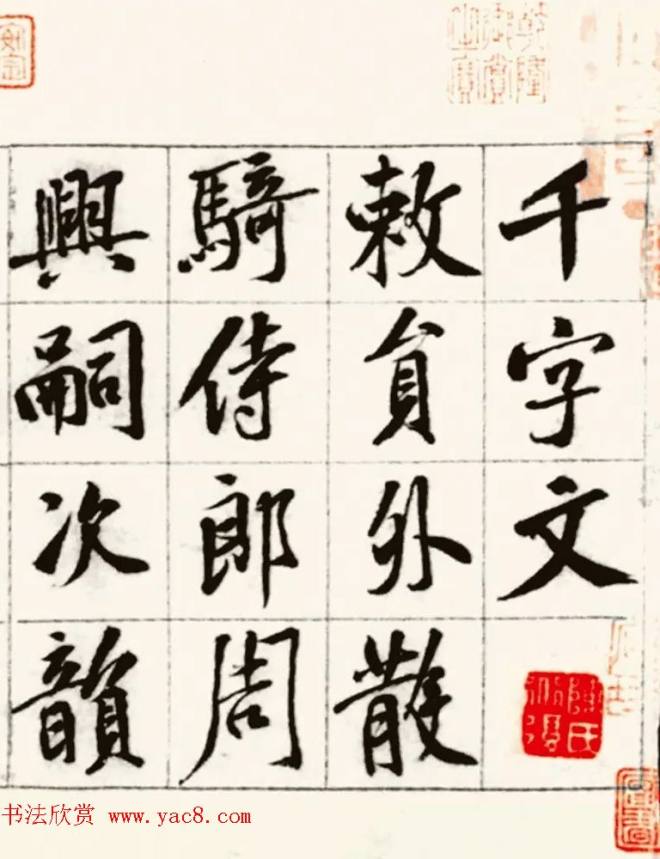 千字文
敕員外散
騎侍郎周
興嗣次韻
乾隆
御賞
書法欣赏 www.yac8.com